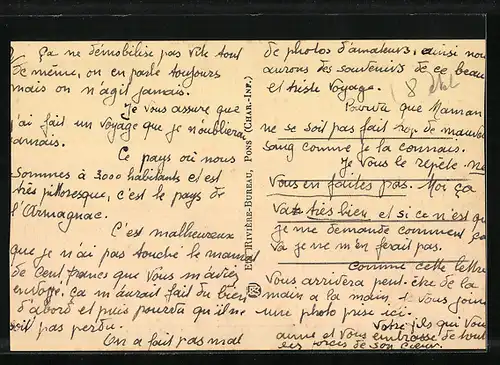 Ça ne démobilise pas vite tout
de même, on en parle toujours
mais on n'agit jamais.
Je vous assure que
j'ai fait un voyage que je n'oublierai
jamais.
Ce pays où nous
sommes à 3000 habitants et est
très pittoresque, c'est le pays de
l'Armagnac.
C'est malheureux
que je n'ai pas touché le mandat
de cent francs que vous m'aviez
envoyé, ça m'aurait fait du bien
d'abord et puis pourvu qu'il ne
soit pas perdu.
On a fait pas mal
Edit. RIVIÈRE-BUREAU, PONS (CHAR.-INF.)
de photos d'amateurs, ainsi nous
aurons des souvenirs de ce beau
et triste voyage.
8
Pourvu que Maman
ne se soit pas fait trop de mauvais
sang comme je la connais.
Je vous le répète ne
vous en faites pas. Moi ça
va très bien et si ce n'est que
je me demande comment ça
va je ne m'en ferait pas.
Comme cette lettre
vous arrivera peut-être de la
main a la main, je vous joins
une photo prise ici.
Votre fils qui vous
aime et vous embrasse de tout
les forces de son cœur.